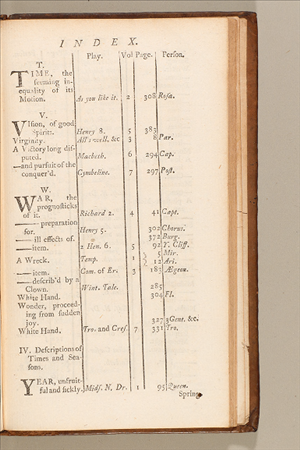 INDEX.
Play. Vol Page. Person.
T.
TIME, the
seeming In-
equality of its
Motion. As you like it. 2 308 Rosa.
V.
VIsion, of good
Spirits. Henry 8. 5 383
Virginity. All's well. &c 3 8 Par.
A Victory long dis-
puted. Macbeth. 6 294 Cap.
—and pursuit of the
conquer'd. Cymbeline. 7 297 Post.
W.
WAR, the
prognosticks
of it. Richard 2. 4 41 Capt.
—— preparation
for. Henry 5. 302 Chorus.
—— ill effects of. 372 Burg.
——item. 2 Hen. 6. 5 92 Y. Cliff.
A Wreck. Temp. 1 5 Mir.
12 Ari.
——item. Com. of Er. 3 183 Ægeon.
——describ'd by a
Clown. Wint. Tale. 285
White Hand. 304 Fl.
Wonder, proceed-
ing from sudden
joy. 327 3 Gent. &c.
White Hand. Tro. and Cres. 7 331 Tro.
IV. Descriptions of
Times and Sea-
sons.
YEAR, unfruit-
ful and sickly. Mids. N. Dr. 1 95 Queen.
Spring